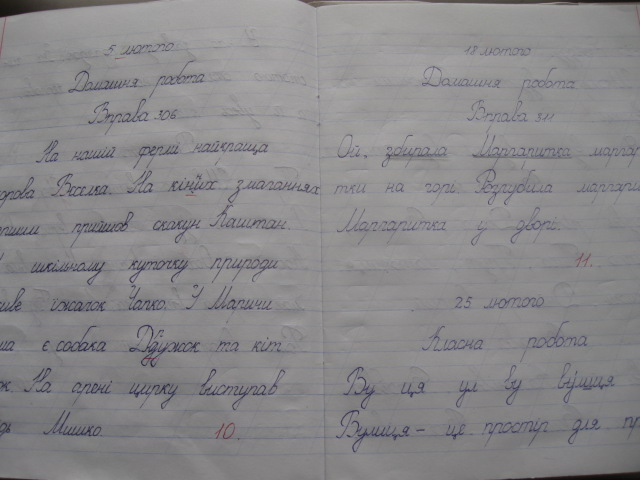 5 лютого
Домашня робота
Вправа 306
На нашій фермі найкраща
корова Білка. На кінних змаганнях
першим прийшов скакун Каштан.
шкільному куточку природи
живе їжачок Чапко. У Маричи
є собака Джужок та кіт
На арені цирку виступав
Мишко.
10.
18 лютого
Домашня робота
Вправа 311
Ой, збирала Маргаритка маргари
тки на горі. Розгубила маргари
Маргаритка у дворі.
11.
25 лютого
Класна робота
Ву ця ул ву вулиця
Вулиця – це простір для